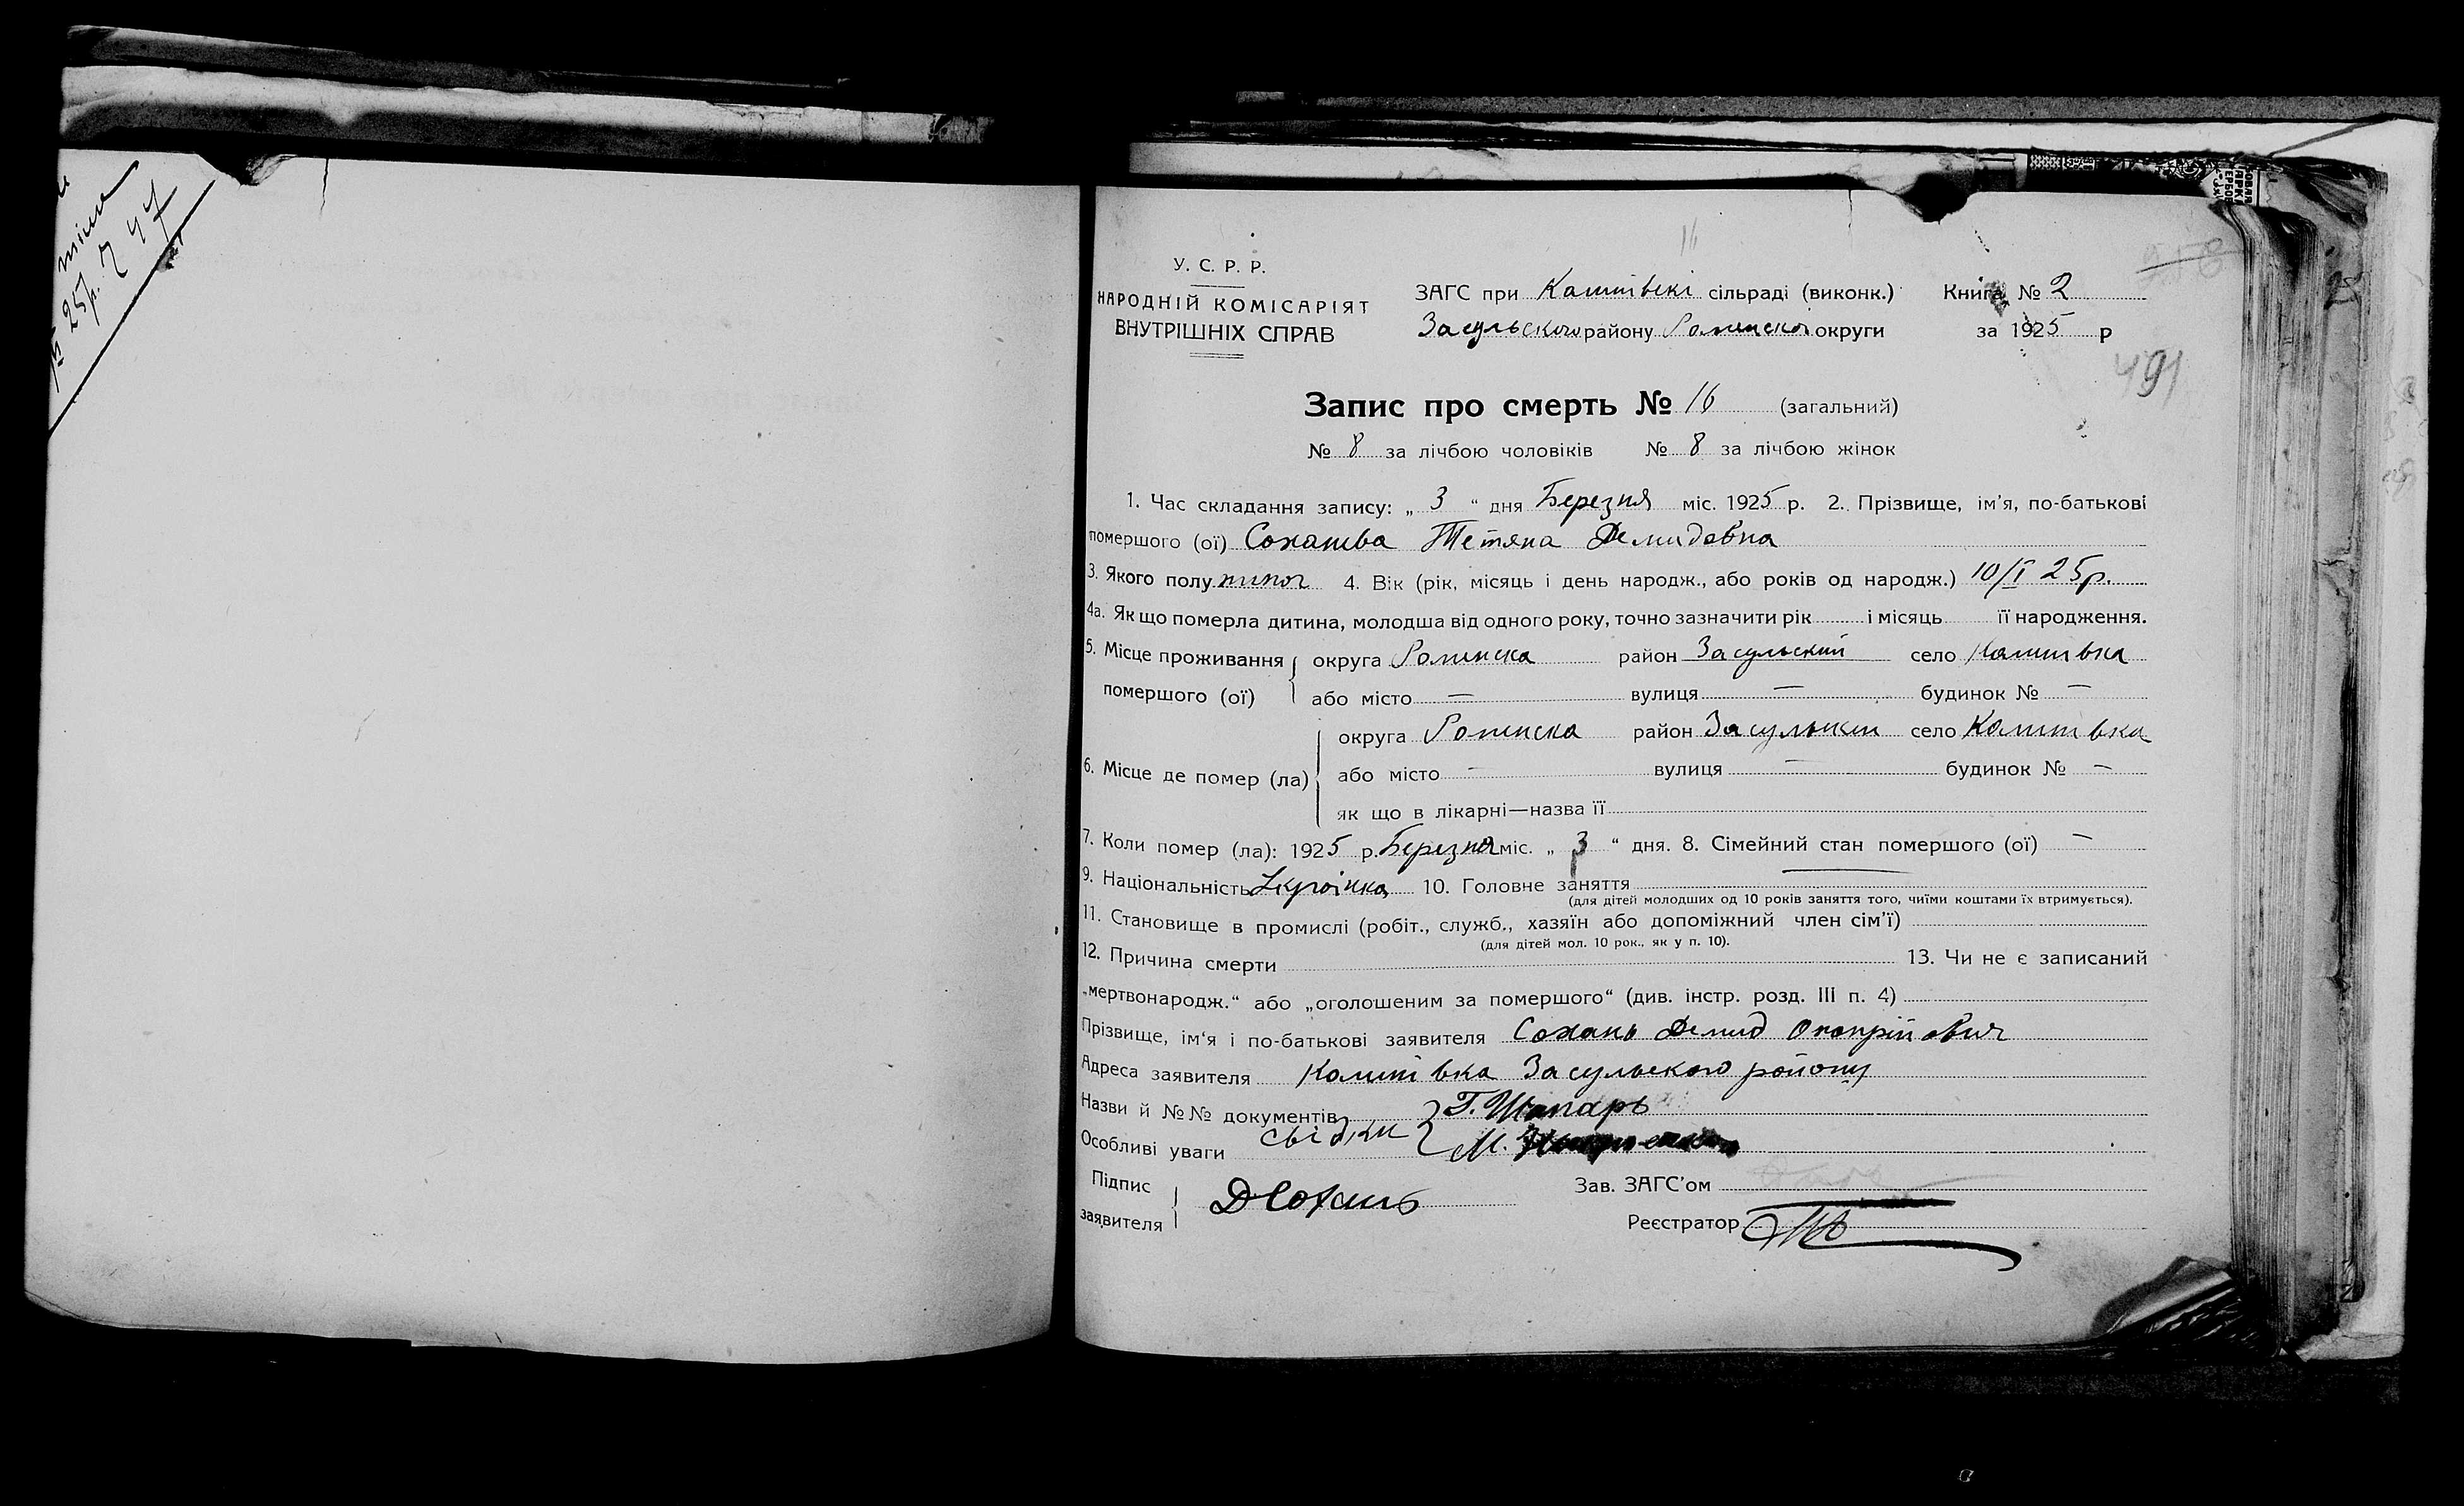 25р. 
16
У. С. Р. Р.
НАРОДНІЙ КОМІСАРІЯТ
ВНУТРІШНІХ СПРАВ
ЗАГС при сільраді (виконк.) Книга № 2
Засульского району Роменскої округи за 1925 р
491
Запис про смерть № 16 (загальний)
№ 8 за лічбою чоловіків № 8 за лічбою жінок
1. Час складання запису: „ 3 “ дня Березня міс. 1925 р. 2. Прізвище, ім’я, по-батькові
помершого (ої) Тетяна Демидовна
3. Якого полу жіноч 4. Вік (рік, місяць і день народж., або років од народж.) 10/I 25р.
4а. Як що померла дитина, молодша від одного року, точно зазначити рік і місяць її народження.
5. Місце проживання округа Роменска район Засульский село
помершого (ої) або місто — вулиця — будинок № —
округа Роменска район село
6. Місце де помер (ла) або місто — вулиця — будинок № —
як що в лікарні—назва її
7. Коли помер (ла): 1925 р. Березня міс. „ 3 “ дня. 8. Сімейний стан помершого (ої) —
9. Національність Украінка 10. Головне заняття
(для дітей молодших од 10 років заняття того, чиїми коштами їх втримується).
11. Становище в промислі (робіт., служб., хазяїн або допоміжний член сім’ї)
(для дітей мол. 10 рок., як у п. 10).
12. Причина смерти 13. Чи не є записаний
„мертвонародж.“ або „оголошеним за помершого“ (див. інстр. розд. III п. 4)
Прізвище, ім’я і по-батькові заявителя Сохань Демид
Адреса заявителя Засульского району
Назви й №№ документів Г. Шапарь
Особливі уваги свідки М.
Підпис
заявителя ДСохань
Зав. ЗАГС’ом
Реєстратор